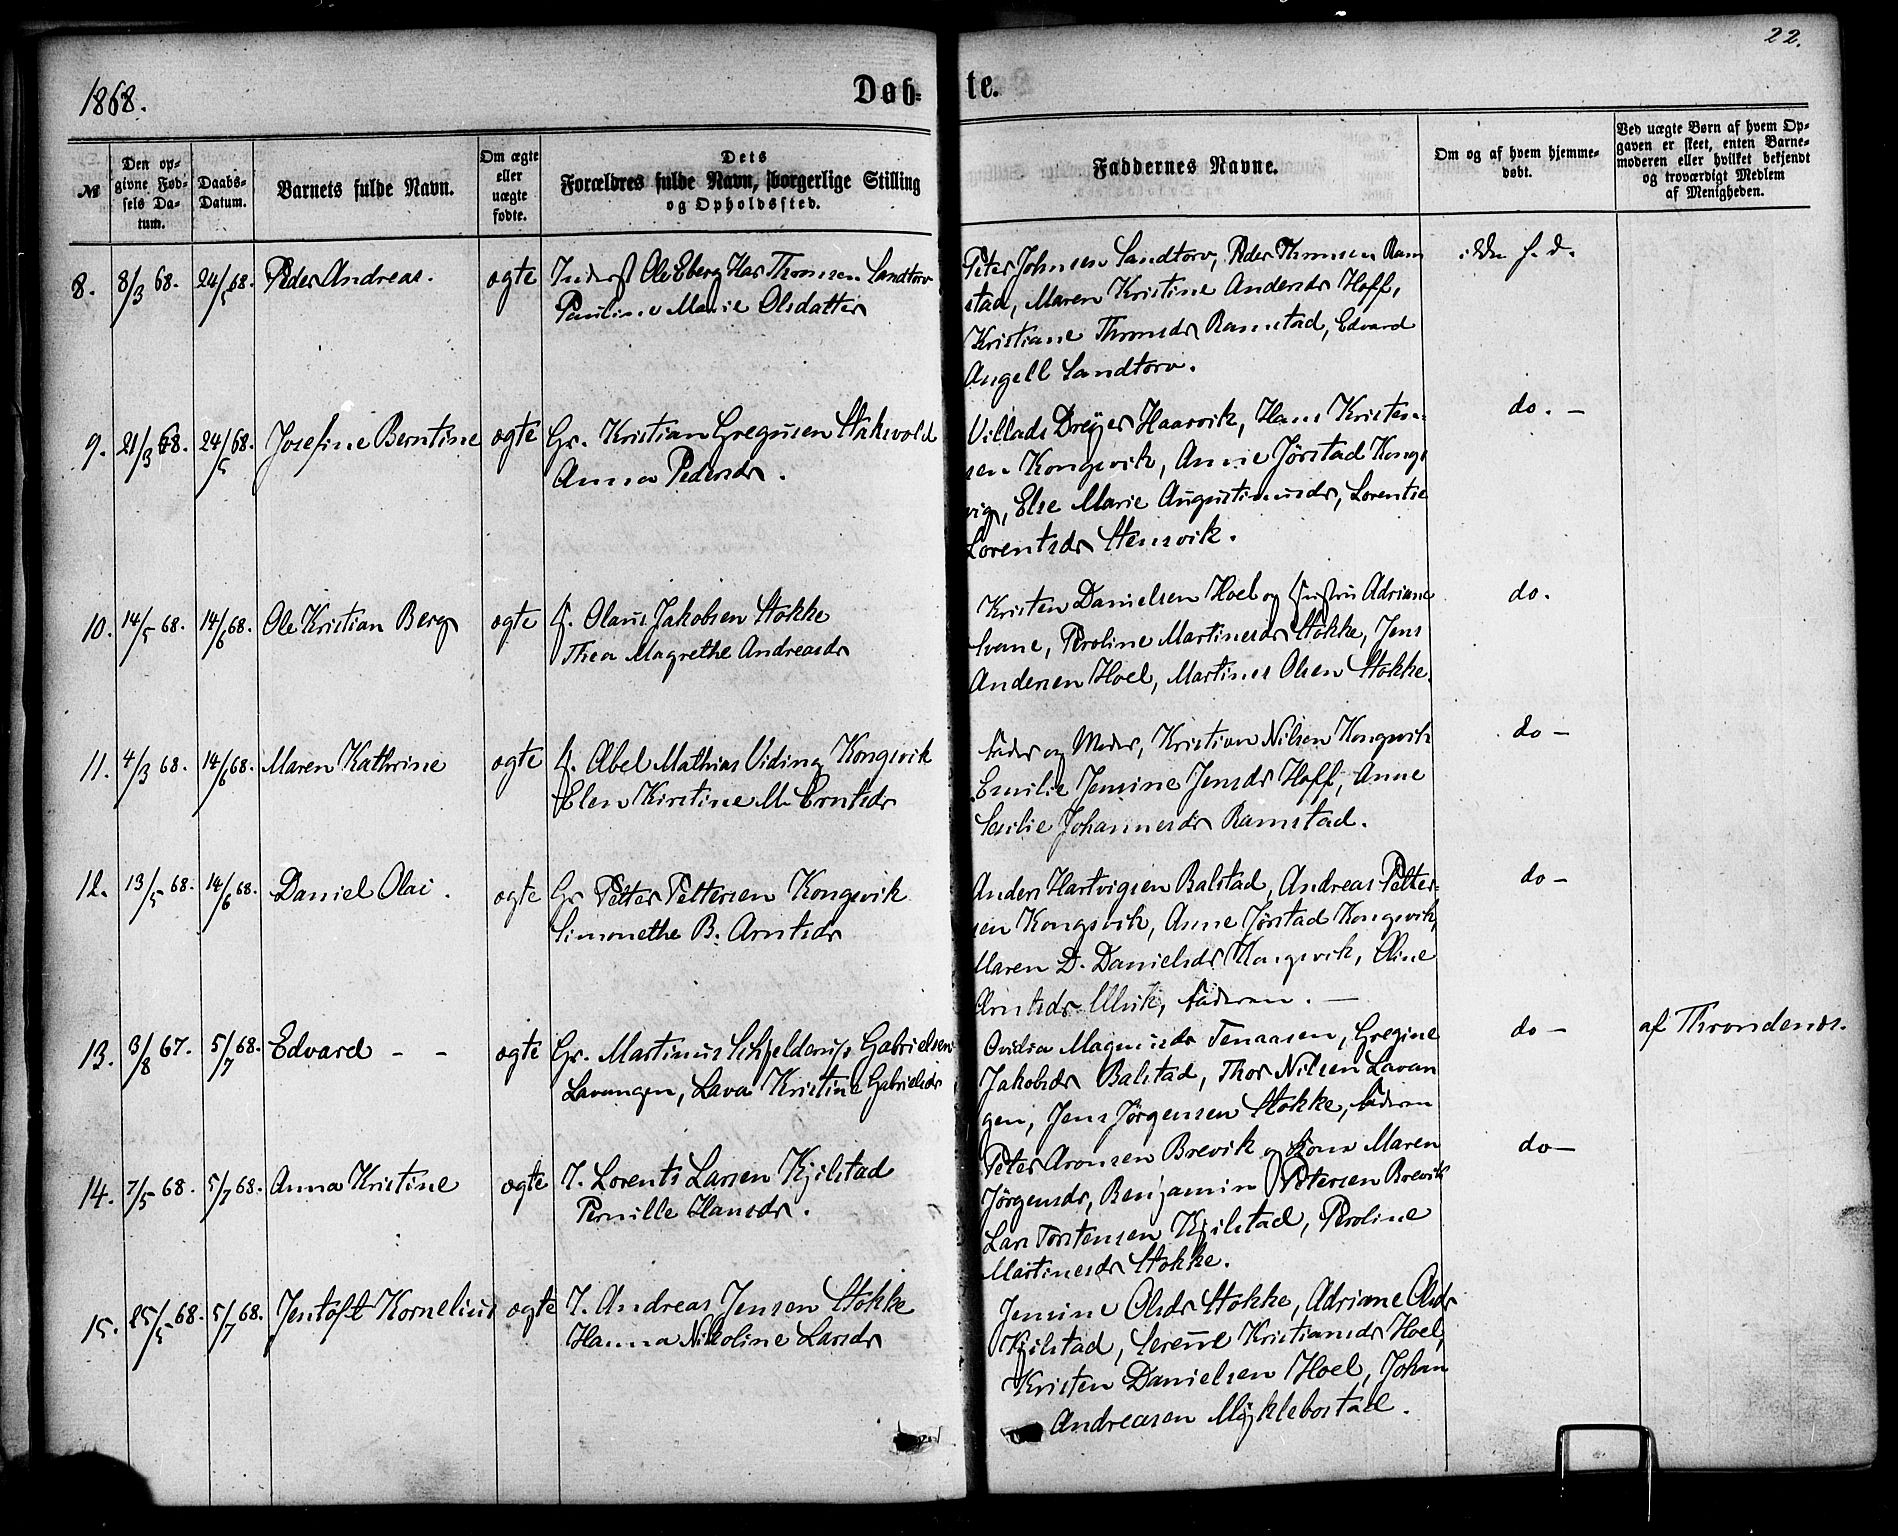 22.
1868.
Døb-
te.
№
Den op-
givne Fød-
sels Da-
tum.
Daabs-
Datum.
Barnets fulde Navn.
Om ægte
eller
uægte
fødte.
Dets
Forældres fulde Navn, borgerlige Stilling
og Opholdssted.
Faddernes Navne.
Om og af hvem hjemme-
døbt.
Ved uægte Børn af hvem Op-
gaven er skeet, enten Barne-
moderen eller hvilket bekjendt
og troværdigt Medlem
af Menigheden.
8. 8/3 68. 24/5 68. Peder Andreas. ægte Inderst Ole Eberg Har Thomsen Sandtorv
Pauline Marie Olsdatter
Peter Johnsen Sandtorv, Peder Thomsen Ram
stad, Maren Kristine Andersdr Hoff,
Kristiane Thomsdr Ramstad, Edvard
Angell Sandtorv.
ikke h. d.
9. 21/3 68. 24/5 68. Josefine Berntine ægte Gr. Kristian Gregusen Stakvold
Anna Pedersdr.
Villads Dreyer Haarvik, Hans Kristen-
sen Kongsvik, Anne Jørstad Kongs
vig, Else Marie Augustinusdr, Lorentse
Lorentsdr Stensvik.
do. -
10. 14/5 68. 14/6 68. Ole Kristian Berg ægte F. Olaus Jakobsen Stokke
Thea Magrethe Andreasdr
Kristen Danielsen Hoel og Hustru Adriane
Svane, Peroline Martinusdr Stokke, Jens
Andersen Hoel, Martinus Olsen Stokke.
do.
11. 4/3 68. 14/6 68. Maren Kathrine ægte F. Abel Mathias Viding Kongsvik
Elen Kirstine M. Erntsdr
Fader og Moder, Kristian Nilsen Kongsvik
Emilie Jensine Jensdr Hoff, Anne
Cecilie Johannesdr Ramstad.
do -
12. 13/5 68. 14/6 68. Daniel Olai. ægte Gr Petter Pettersen Kongsvik
Simonethe B. Arntsdr
Anders Hartvigsen Balstad, Andreas Petter-
sen Kongsvik, Anne Jørstad Kongsvik,
Maren D. Danielsdr Kongsvik, Oline
Arntsdr Ulvik, Faderen. -
do -
13. 3/8 67. 5/7 68. Edvard - - ægte Gr. Martinus Schjelderup Gabrielsen
Lavangen, Lava Kristine Gabrielsdr
Ovidia Magnusdr Tenaasen, Gregine
Jakobsdr Balstad, Thor Nilsen Lavan
gen, Jens Jørgensen Stokke, Faderen
do -
af Throndenæs.
14. 7/5 68. 5/7 68. Anna Kristine ægte I. Lorents Larsen Kjilstad
Pernille Hansdr.
Peter Aronsen Brevik og Kone Maren
Jørgensdr, Benjamin Petersen Brevik
Lars Torstensen Kjilstad, Peroline
Martinusdr Stokke.
do -
15. 25/5 68. 5/7 68. Jentoft Kornelius ægte I. Andreas Jensen Stokke
Hanna Nikoline Larsdr
Jensine Olsdr Stokke, Adriane Olsdr
Kjilstad, Serene Kristiansdr Hoel,
Kristen Danielsen Hoel, Johan
Andreasen Myklebostad.